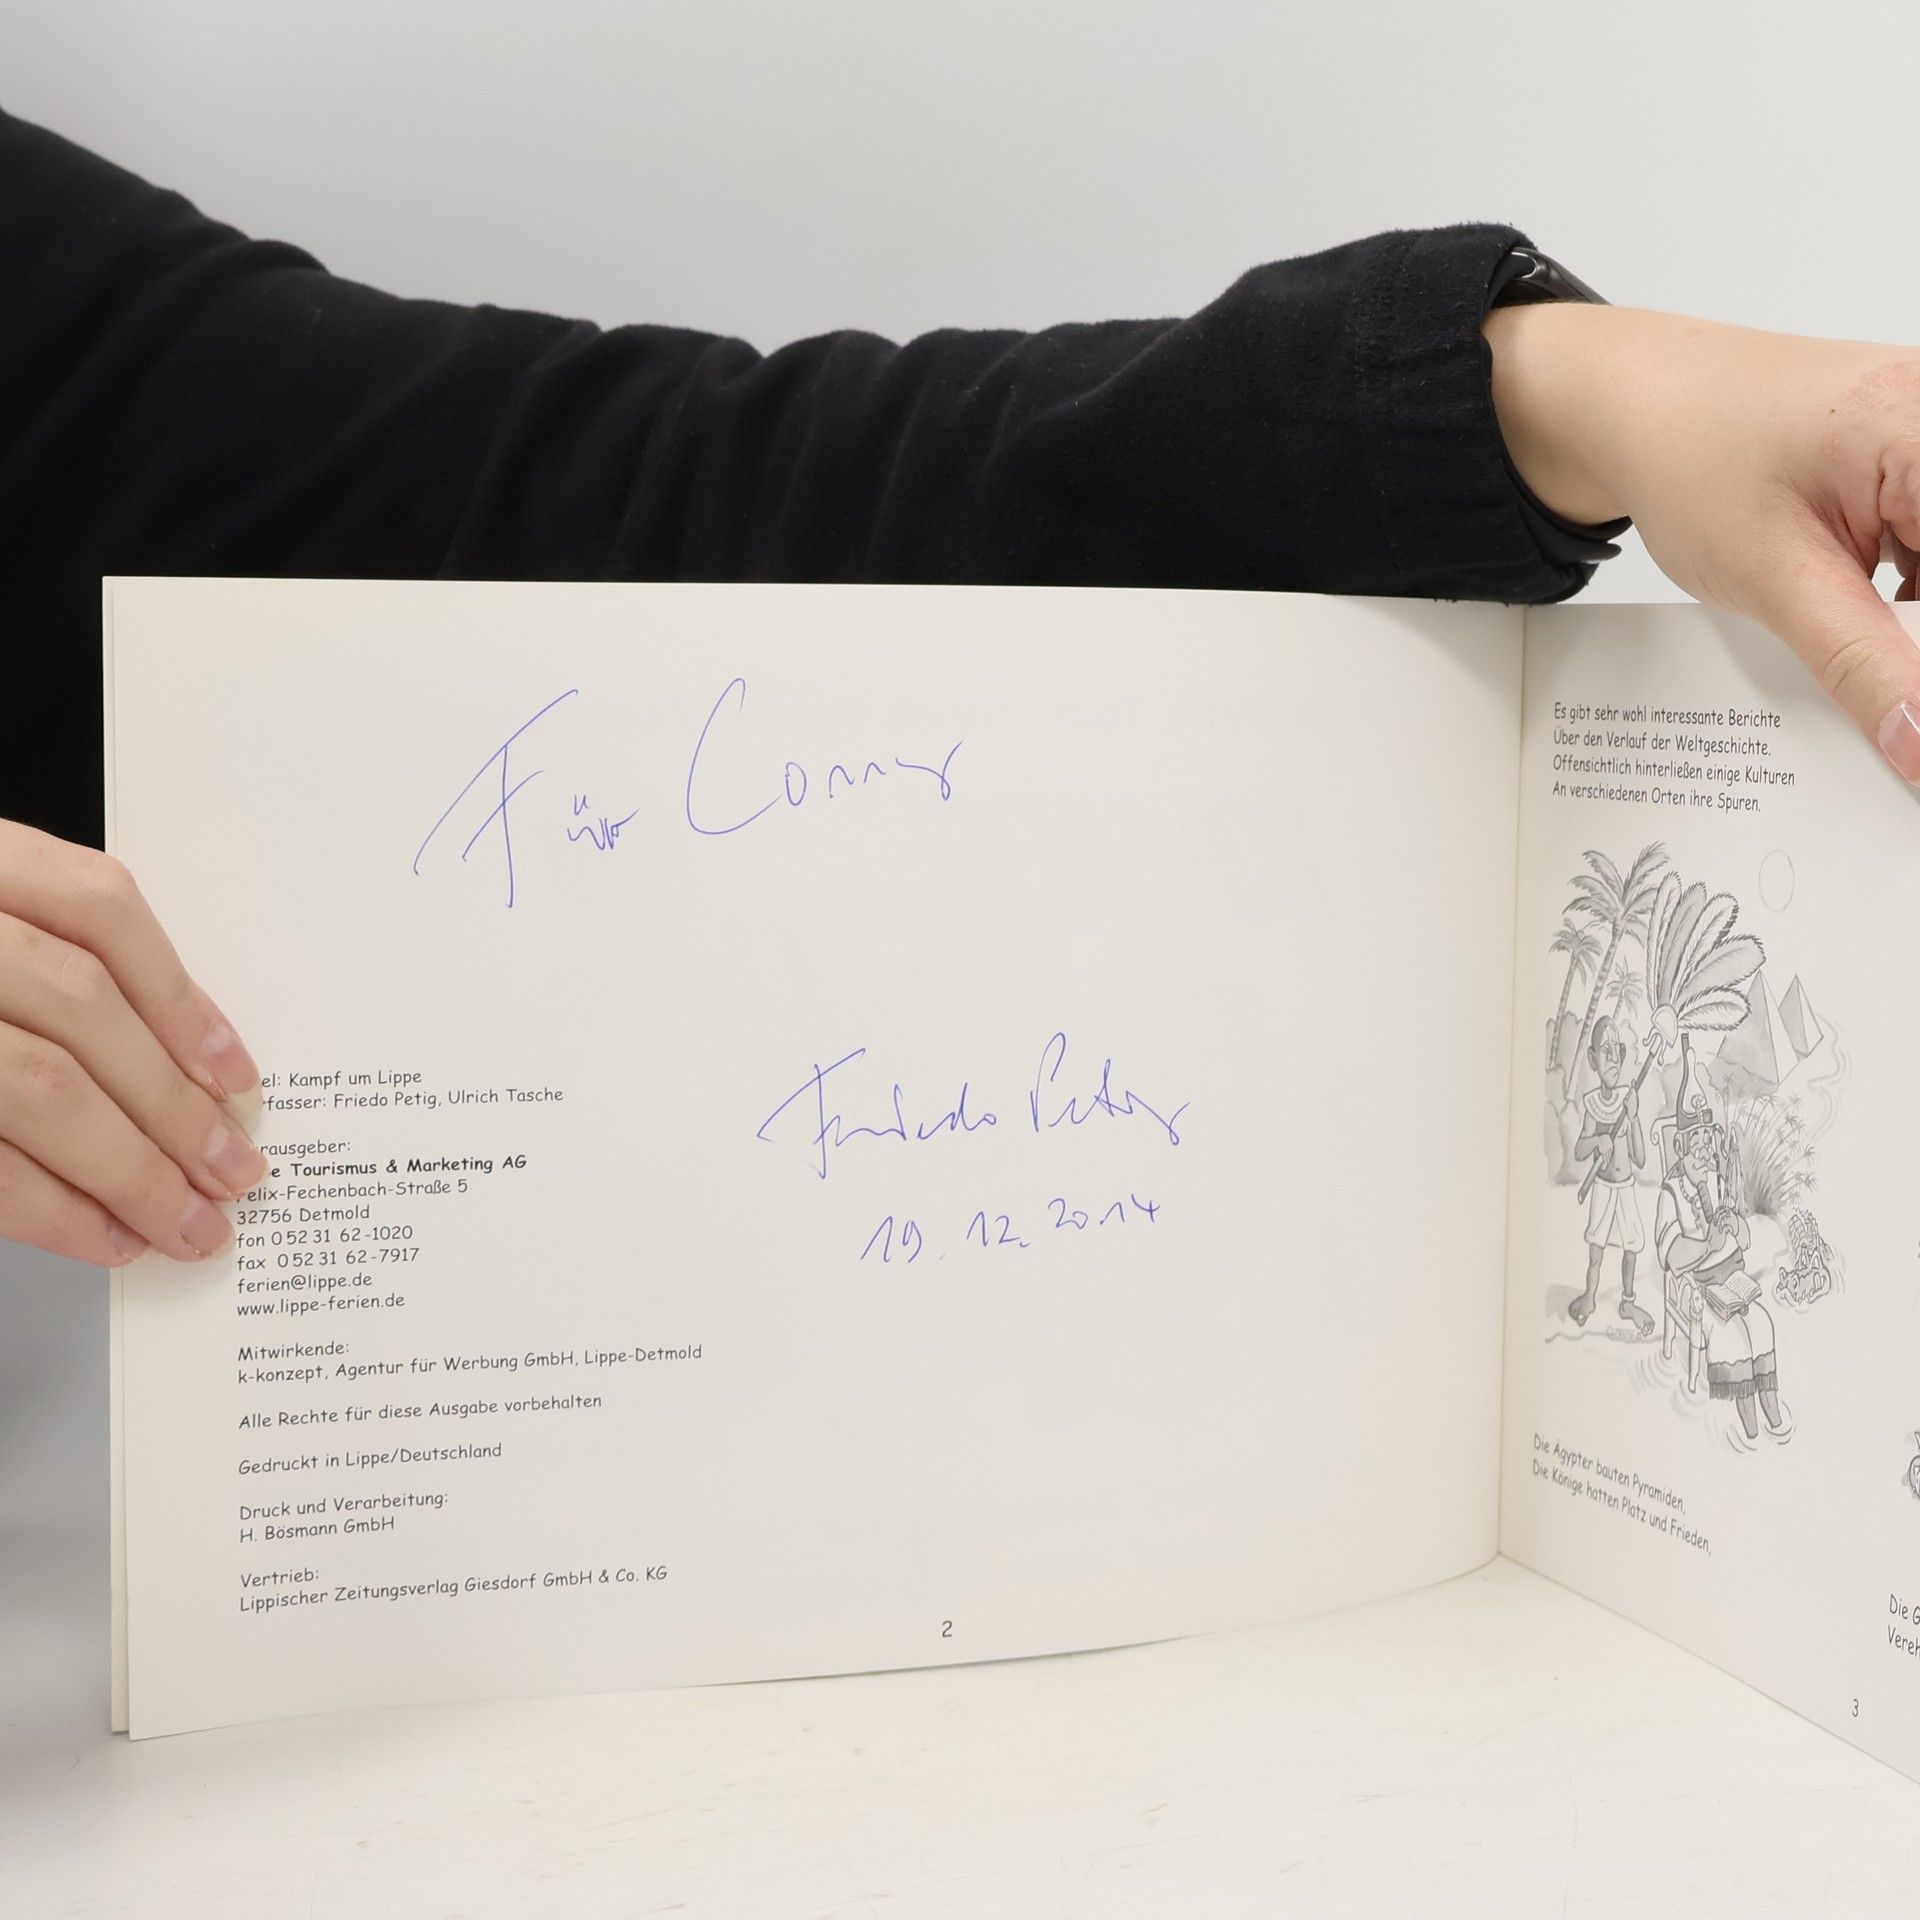 Für Conny
Friedo Petig
19. 12. 2014
el: Kampf um Lippe
fasser: Friedo Petig, Ulrich Tasche
rausgeber:
e Tourismus & Marketing AG
Felix-Fechenbach-Straße 5
32756 Detmold
fon 0 52 31 62-1020
fax 0 52 31 62-7917
ferien@lippe.de
www.lippe-ferien.de
Mitwirkende:
k-konzept, Agentur für Werbung GmbH, Lippe-Detmold
Alle Rechte für diese Ausgabe vorbehalten
Gedruckt in Lippe/Deutschland
Druck und Verarbeitung:
H. Bösmann GmbH
Vertrieb:
Lippischer Zeitungsverlag Giesdorf GmbH & Co. KG
2
Es gibt sehr wohl interessante Berichte
Über den Verlauf der Weltgeschichte.
Offensichtlich hinterließen einige Kulturen
An verschiedenen Orten ihre Spuren.
Die Ägypter bauten Pyramiden,
Die Könige hatten Platz und Frieden,
Die G
Vereh
3